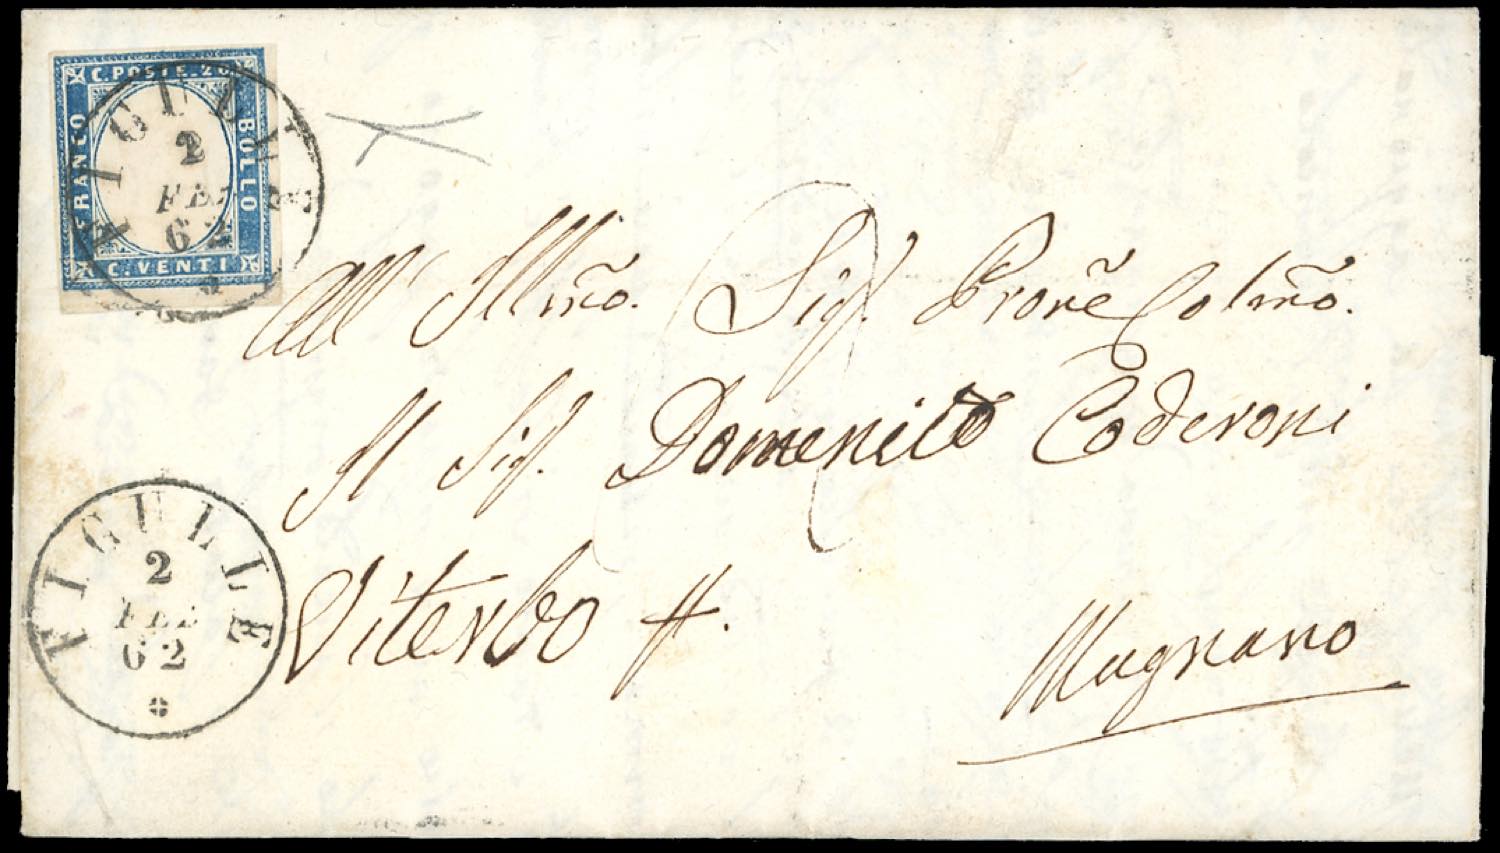 C. POSTE. 20
FRANCO
BOLLO
C. VENTI
FIGULLE
2
FEB
62
All' Illm̃o. Sig.r Proñe Colm̃o.
Il Sig. Domenico Coderoni
Viterbo p.
Mugnano
FIGULLE
2
FEB
62